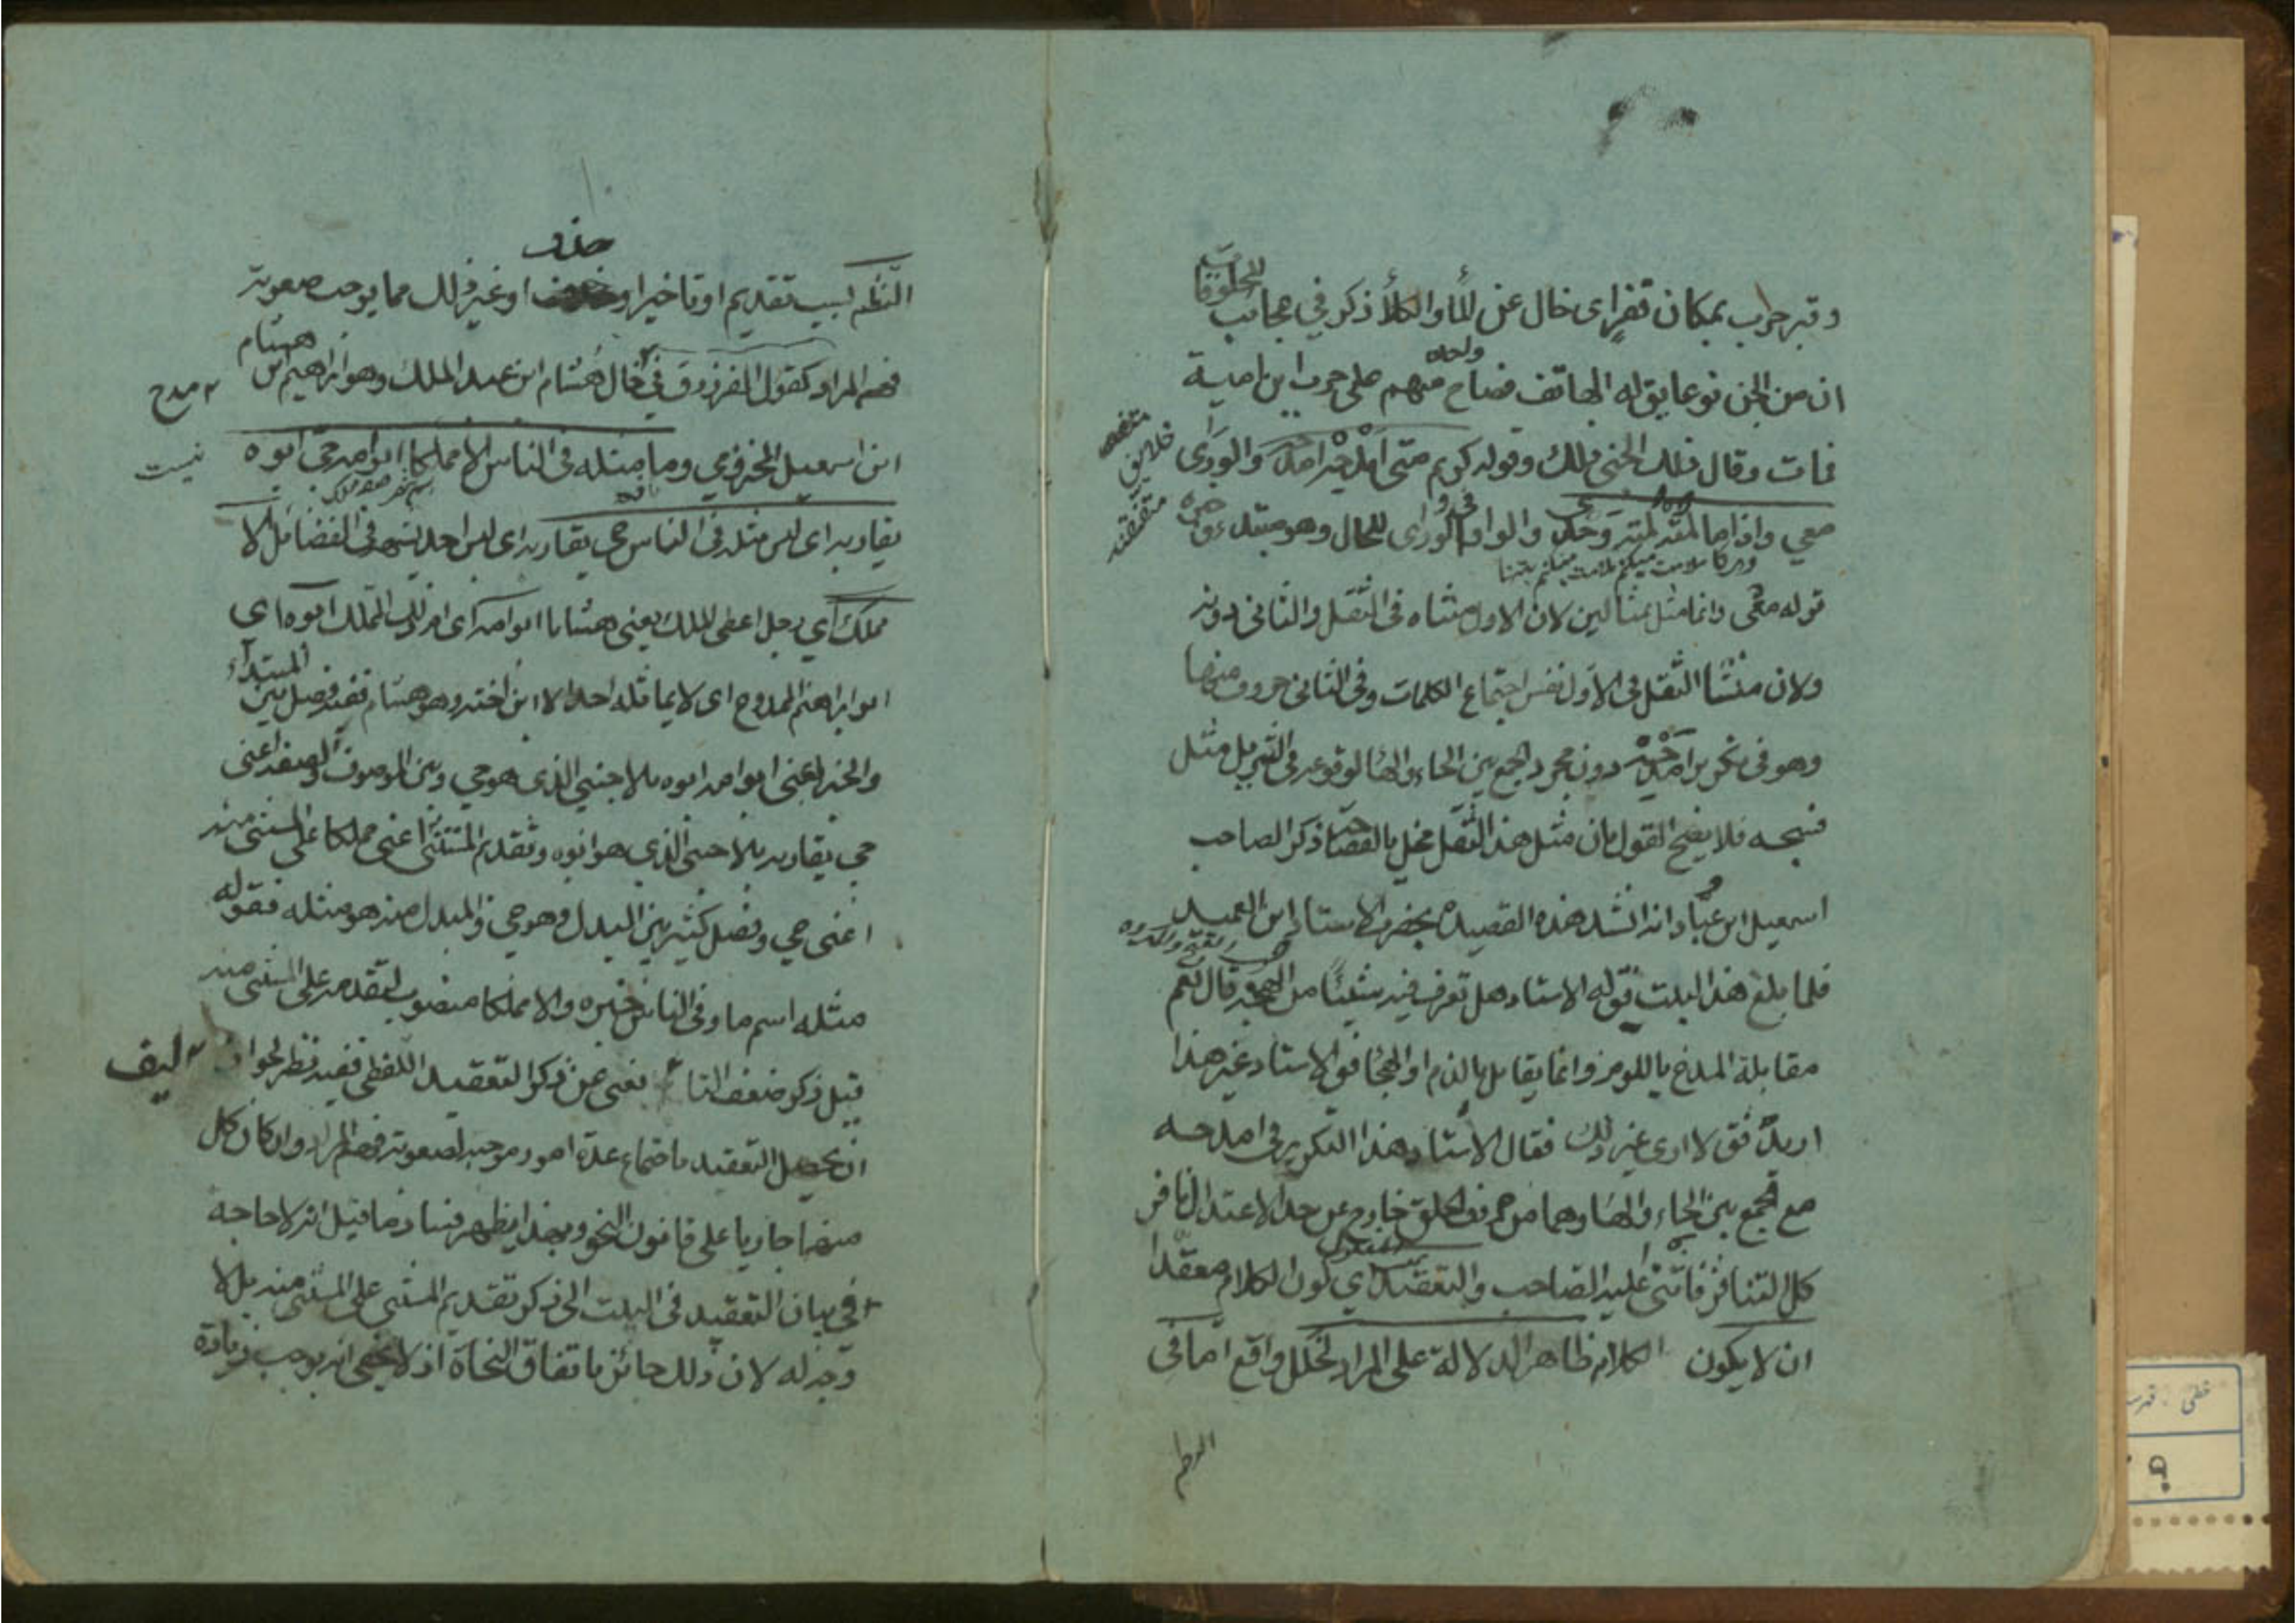 وقبر حرب بمكان قفر اى خال عن الماء والكلأ ذكر في عجائب
المخلوقات
ان من الجن نوعا يق له الهاتف فصاح واحد منهم على حرب ابن امية
فمات وقال ذلك الجنى ذلك وقوله كريم متى امدحه امدحه والورى
معي واذا ما لمته لمته وحدى والواو فى والورى للحال وهو مبتدء وخبره
قوله معى وانما مثل بمثالين لان الاول متناه فى الثقل والثانى دونه
ولان منشا الثقل فى الاول نفس اجتماع الكلمات وفى الثانى حروف منها
وهو فى تكرير امدحه دون مجرد الجمع بين الحاء والهاء لوقوعه فى التنزيل مثل
فسبحه فلا يصح القول بان مثل هذا الثقل مخل بالفصاحة ذكر الصاحب
اسمعيل ابن عباد انه انشد هذه القصيدة بحضرة الاستاد ابن العميد
فلما بلغ هذا البيت قوله الاستاد هل تعرف فيه شيئا من الهجنة قال نعم
مقابلة المدح باللوم وانما يقابل بالذم او الهجا فق الاستاد غير هذا
اريد فق لا ادرى غير ذلك فقال الاستاد هذا التكرير فى امدحه
مع الجمع بين الحاء والهاء وهما من حروف الحلق خارج عن حد الاعتدال نافر
كل التنافر فاثنى عليه الصاحب والتعقيد اي كون الكلام معقدا
ان لا يكون الكلام ظاهر الدلالة على المراد لخلل واقع اما فى
النظم
خلايق
حذف
النظم بسبب تقديم او تاخير او او غير ذلك مما يوجب صعوبة
فهم المراد كقول الفرزدق في خال هشام ابن عبد الملك وهو ابراهيم ابن هشام
مدح
ابن اسمعيل المخزومي وما مثله فى الناس الا مملكا ابو امه حى ابوه
نيست
يقاربه اى ليس مثله فى الناس حى يقاربه اى ليس احد يشبهه فى الفضائل الا
مملك اي رجل اعطى الملك يعنى هشاما ابو امه اى ام ذلك المملك ابوه اى
ابو ابراهيم الممدوح اى لا يماثله احد الا ابن اخته وهو هشام ففيه فصل بين المبتداء
والخبر اعنى ابو امه ابوه بالاجنبي الذى هو حي وبين الموصوف والصفة اعنى
حي يقاربه بالاجنبى الذي هو ابوه وتقديم المستثنى اعنى مملكا على المستثنى منه
اعنى حي وفصل كثير بين البدل وهو حي والمبدل منه هو مثله فقوله
مثله اسم ما وفى الناس خبره والا مملكا منصوب لتقدمه على المستثنى منه
قيل ذكر ضعف التا يغنى عن ذكر التعقيد اللفظى ففيه نظر لجواز
ليف
ان يحصل التعقيد باجتماع عدة امور موجبة لصعوبة فهم المراد وان كان كل
منها جاريا على قانون النحو وبهذا يظهر فساد ما قيل انه لا حاجة
فى بيان التعقيد فى البيت الى ذكر تقديم المستثنى على المستثنى منه بل لا
وجه له لان ذلك جائز باتفاق النحاة اذ لا يخفى انه يوجب زيادة